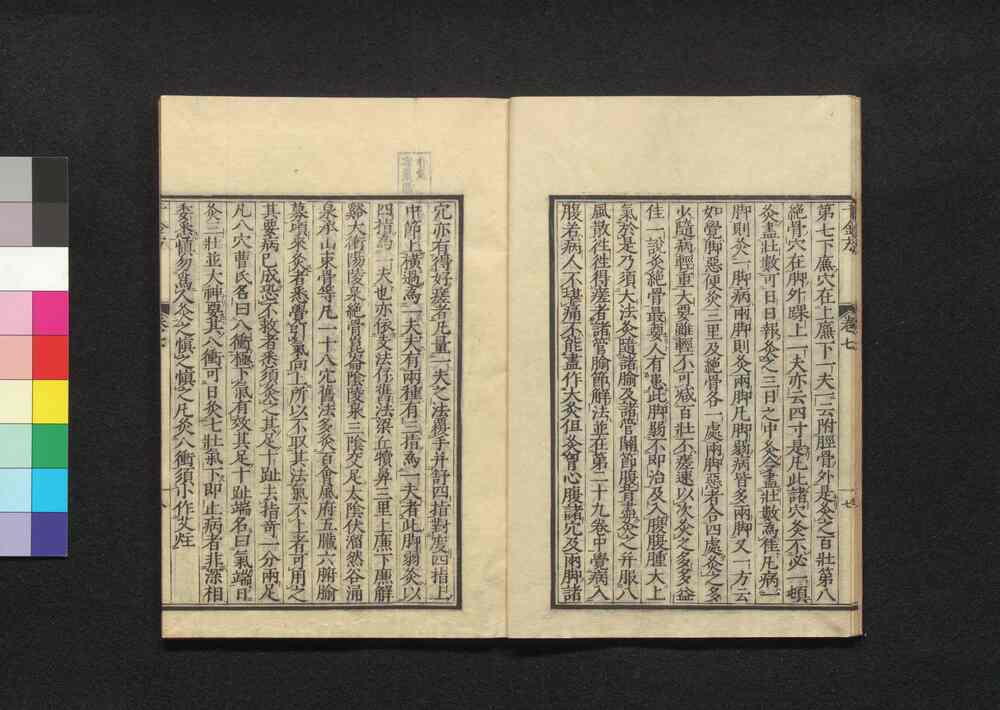 第七下廉穴在上廉下一夫一云附脛骨外是灸之百壯第八
絶骨穴在脚外踝上一夫亦云四寸是凡此諸穴灸不必一頓
灸盡壯數可日日報灸之三日之中灸令盡壯數爲佳凡病一
脚則灸一脚病兩脚則灸兩脚凡脚弱病皆多兩脚又一方云
如覺脚惡便灸三里及絶骨各一處兩脚惡者合四處灸之多
少隨病輕重大要雖輕不可减百壯不差速以次灸之多多益
佳一說灸絶骨最要人有患此脚弱不即治及入腹腹腫大上
氣於是乃須大法灸隨諸腧及諸管關節腹背盡灸之并服八
風散往往得瘥者諸管腧節解法並在第二十九卷中覺病入
腹若病人不堪痛不能盡作大灸但灸胷心腹諸穴及兩脚諸
卷七
十七
穴亦有得好瘥者凡量一夫之法覆手并舒四指對度四指上
中節上橫過爲一夫夫有兩種有三指爲一夫者此脚弱灸以
四指爲一夫也亦依支法存舊法梁丘犢鼻三里上廉下廉解
谿太衝陽陵泉絶骨崑崙陰陵泉三陰交足太陰伏溜然谷涌
泉承山束骨等凡一十八穴舊法多灸百會風府五臟六腑腧
募頃來灸者悉覺引氣向上所以不取其法氣不上者可用之
其要病已成恐不救者悉須灸之其足十趾去指奇一分兩足
凡八穴曹氏名曰八衝極下氣有效其足十趾端名曰氣端日
灸三壯並大神要其八衝可日灸七壯氣下即止病者非深相
委悉慎勿爲人灸之慎之慎之凡灸八衝須小作艾炷